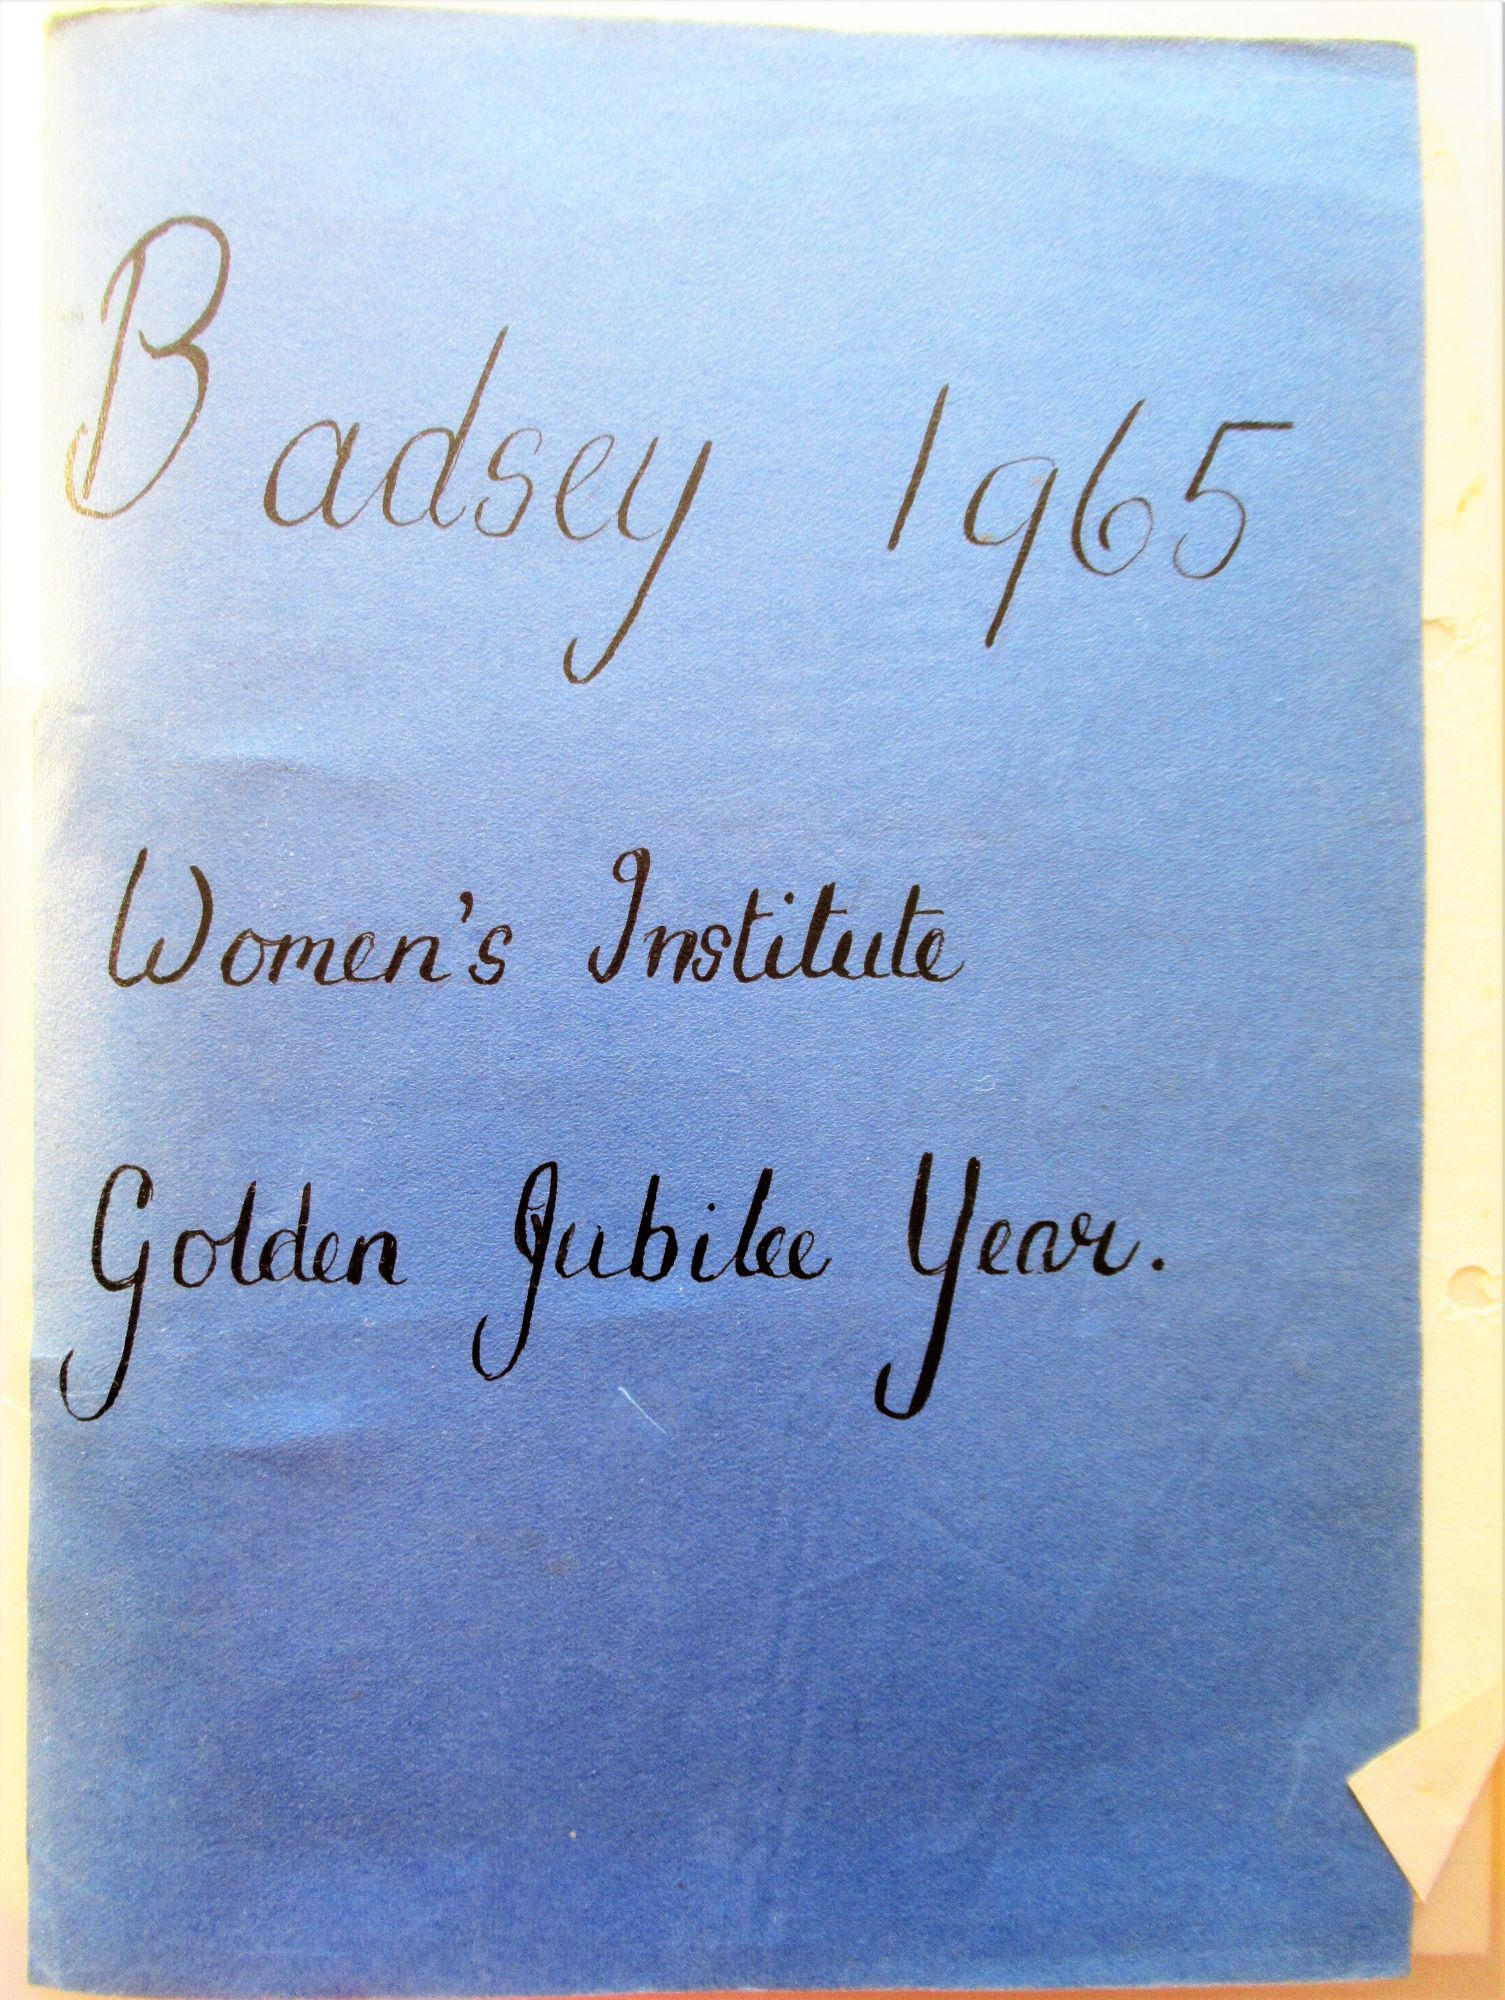 Badsey 1965
Women's Institute
Golden Jubilee Year.